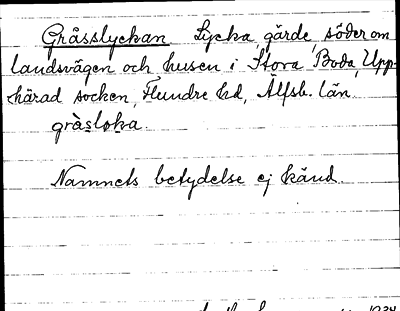 Gråsslyckan Lycka, gärde, söder om
landsvägen och husen i Stora Boda, Upp-
härad socken, Flundre hd, Älfsb. län.
gràsloka.
Namnets betydelse ej känd.
1934